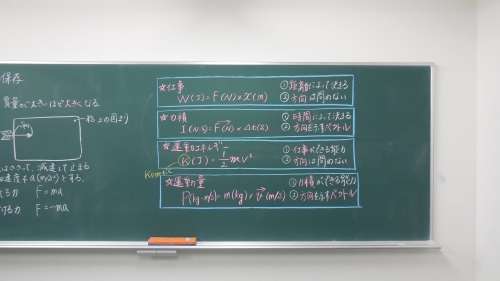 保存
質量が大きいほど大きくなる
て、減速して止まる
速度を a(m/s²)とする。
る力 F=ma
ける力 F=-ma
☆仕事
W(J)=F(N)×x(m)
①距離によって決まる
②方向は問わない
☆力積
I(N·s)=F(N)×Δt(s)
①時間によって決まる
②方向を示すベクトル
☆運動エネルギー
K(J)=1/2mv²
①仕事ができる能力
②方向は問わない
Kinetic
☆運動量
P(kg·m/s)=m(kg)×v(m/s)
①力積ができる能力
②方向を示すベクトル